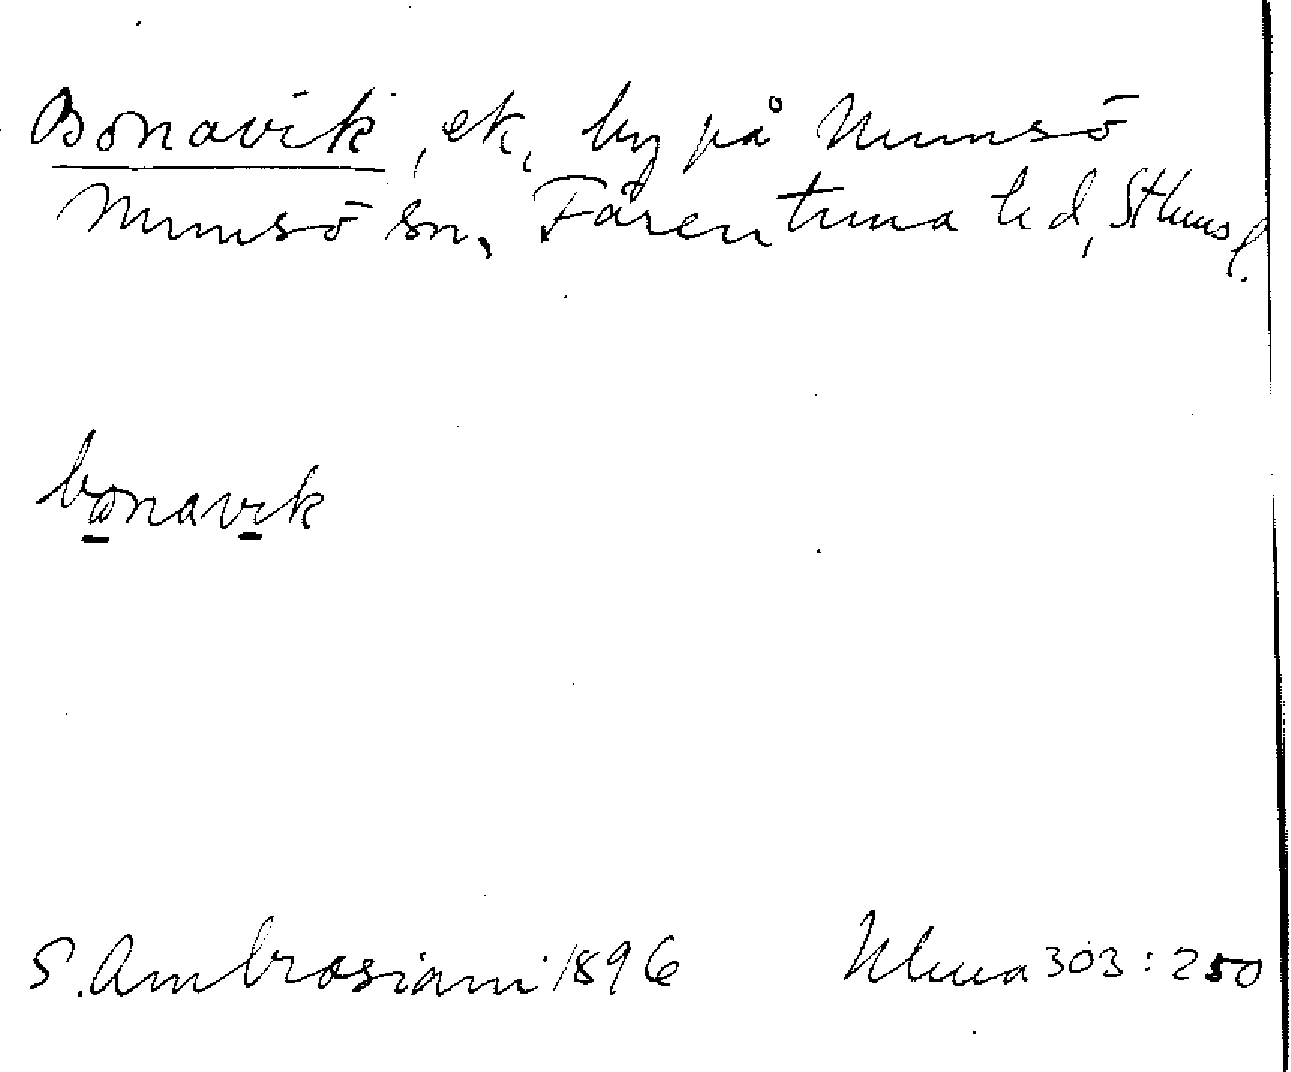 Bonavik, ek, by på Munsö
Munsö sn, Färentuna hd, Sthms l.
bonavik
S. Ambrosiani 1896 Ulma 303:250